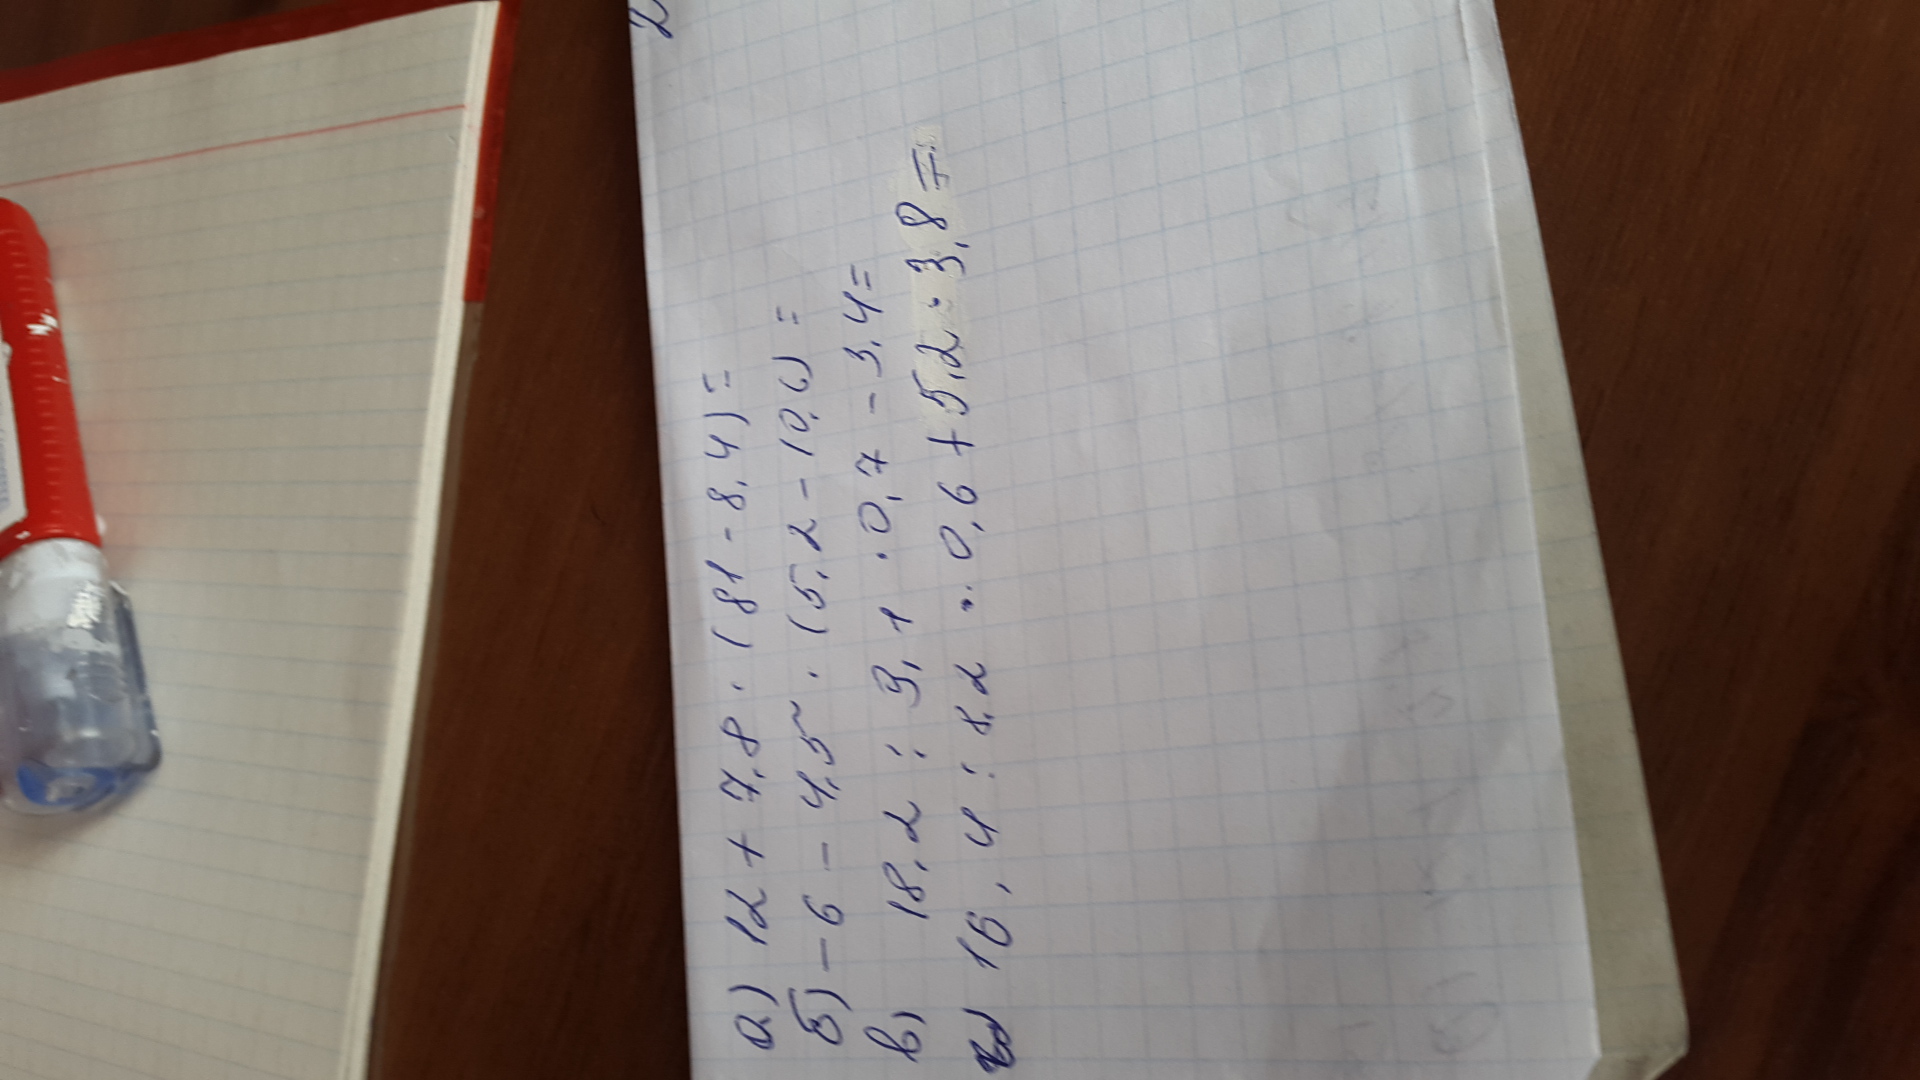 2
а) 12 + 7,8 · (81 - 8,4) =
б) - 6 - 4,5 · (5,2 - 10,6) =
в) 18,2 : 9,1 · 0,7 - 3,4 =
16,4 : 8,2 · 0,6 + 5,2 · 3,8 =